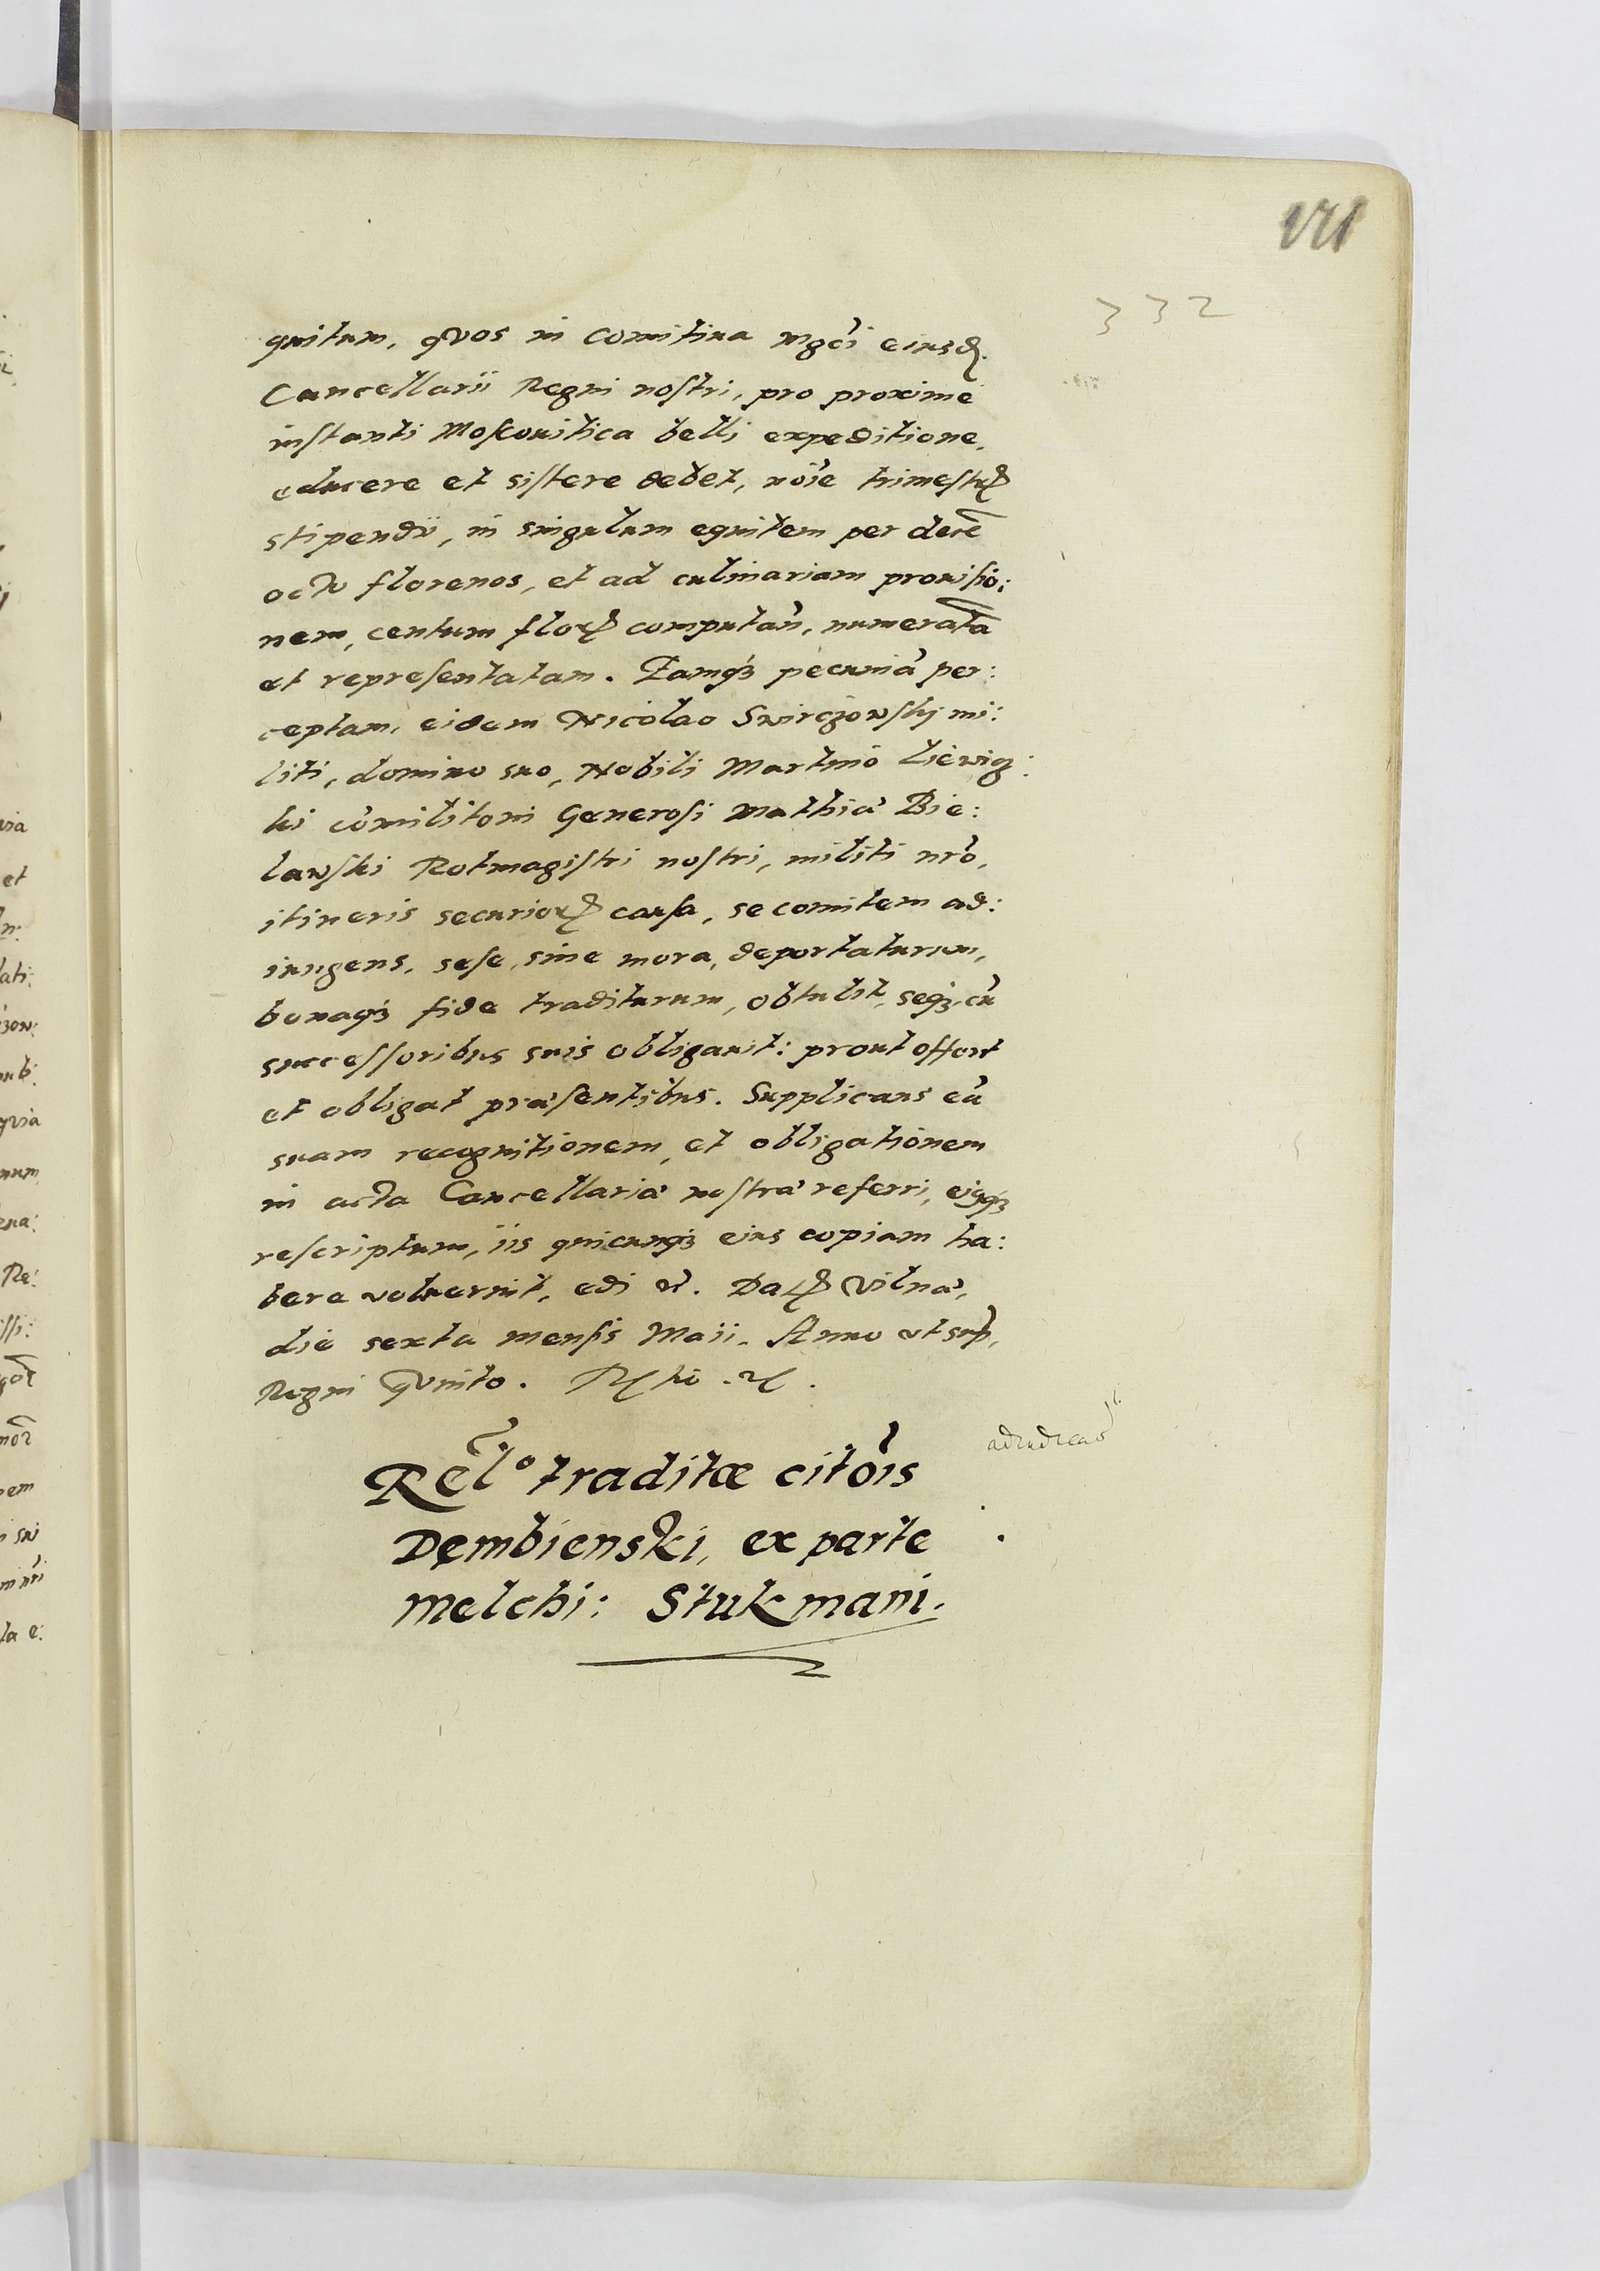 332
quitum, quos in comitiua mgci eiusd.
Cancellarii Regni nostri, pro proxime
instanti Moscouitica belli expeditione,
educere et sistere debet, noie trimestr
stipendii, in singulum equitem per dece
octo florenos, et ad culinariam prouisio:
nem, centum flor computan, numerata
et representatam. Eamq3 pecunia per:
ceptam, eidem Nicolao Swirczowskj mi:
liti, domino suo, Nobili Martino
ki comilitoni Generosi Mathia Bie:
lawski Rotmagistri nostri, militi nro,
itineris securior causa, se comitem ad:
iungens, sese, sine mora, deportaturum,
bonaq3 fide traditurum, obtulit, seq3 cu
successoribus suis obligauit: prout offert
et obligat præsentibus. Supplicans ea
suam recognitionem, et obligationem
in acta Cancellaria nostra referri, eiqq3
rescriptum, iis quicunq3 eius copiam ha:
bere voluerint, edi &. Dat Vilna,
die sexta mensis Maii. Anno ut sup,
Regni quinto.
Relo traditæ citois
Dembienski, ex parte
Melchi: Stukmani.